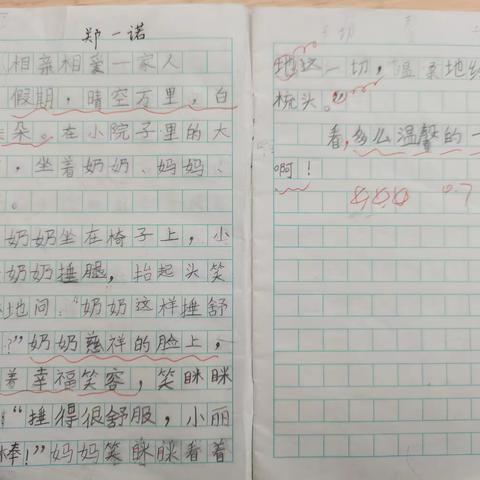 郑一诺
相亲相爱一家人
假期，晴空万里，白
朵。在小院子里的大
，坐着奶奶、妈妈、
。
奶奶坐在椅子上，小
奶奶捶腿，抬起头笑
地问："奶奶这样捶舒
?"奶奶慈祥的脸上，
着幸福笑容，笑眯眯
："捶得很舒服，小丽
棒！"妈妈笑眯眯看着
地这一切，温柔地给
梳头。
看，多么温馨的一
啊！